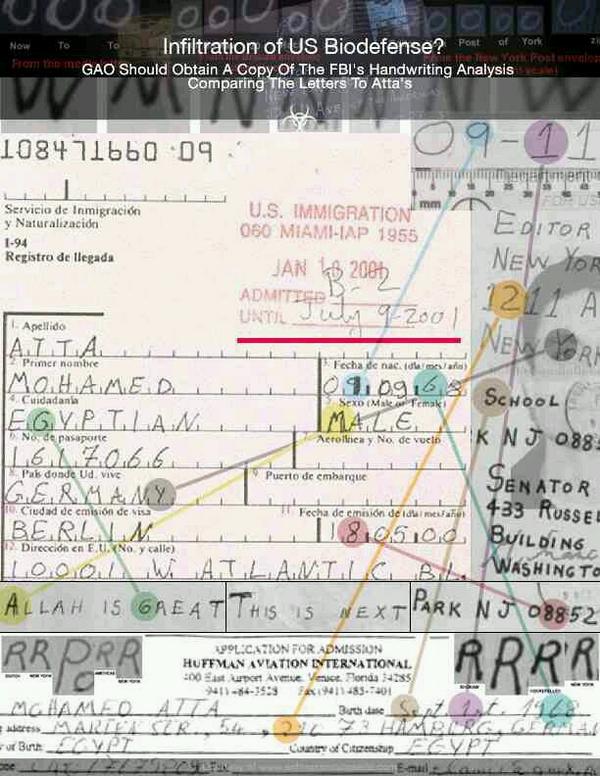 Infiltration of US Biodefense?
GAO Should Obtain A Copy Of The FBI's Handwriting Analysis
Comparing The Letters To Atta's
Now To To Post of York
108471660 09
09-11
mm 5 10 15 20 25 30 35 40 45
Servicio de Inmigración
y Naturalización
I-94
Registro de llegada
U.S. IMMIGRATION
060 MIAMI-IAP 1955
JAN 10 2001
B-2
ADMITTED
UNTIL July 9-2001
EDITOR
NEW YOR
1211 A
NEW YORK
1. Apellido
ATTA
2. Primer nombre
MOHAMED
3. Fecha de nac. (día/mes/año)
01.09.68
4. Ciudadanía
EGYPTIAN
5. Sexo (Male or Female)
MALE
6. No. de pasaporte
1617066
7. Aerolínea y No. de vuelo
8. País donde Ud. vive
GERMANY
9. Puerto de embarque
10. Ciudad de emisión de visa
BERLIN
11. Fecha de emisión (día/mes/año)
18.05.00
12. Dirección en E.U. (No. y calle)
10001 W. ATLANTIC BL.
SCHOOL
K NJ 0885
SENATOR
433 RUSSEL
BUILDING
WASHINGTO
ALLAH IS GREAT
THIS IS NEXT
PARK NJ 08852
RR R RR
RRRR
APPLICATION FOR ADMISSION
HUFFMAN AVIATION INTERNATIONAL
400 East Airport Avenue, Venice, Florida 34285
MOHAMED ATTA
Birth date Sept 1st. 1968
address MARIEN STR., 54, 21073 HAMBURG, GERMAN
of Birth: EGYPT
Country of Citizenship EGYPT
Fax
E-mail